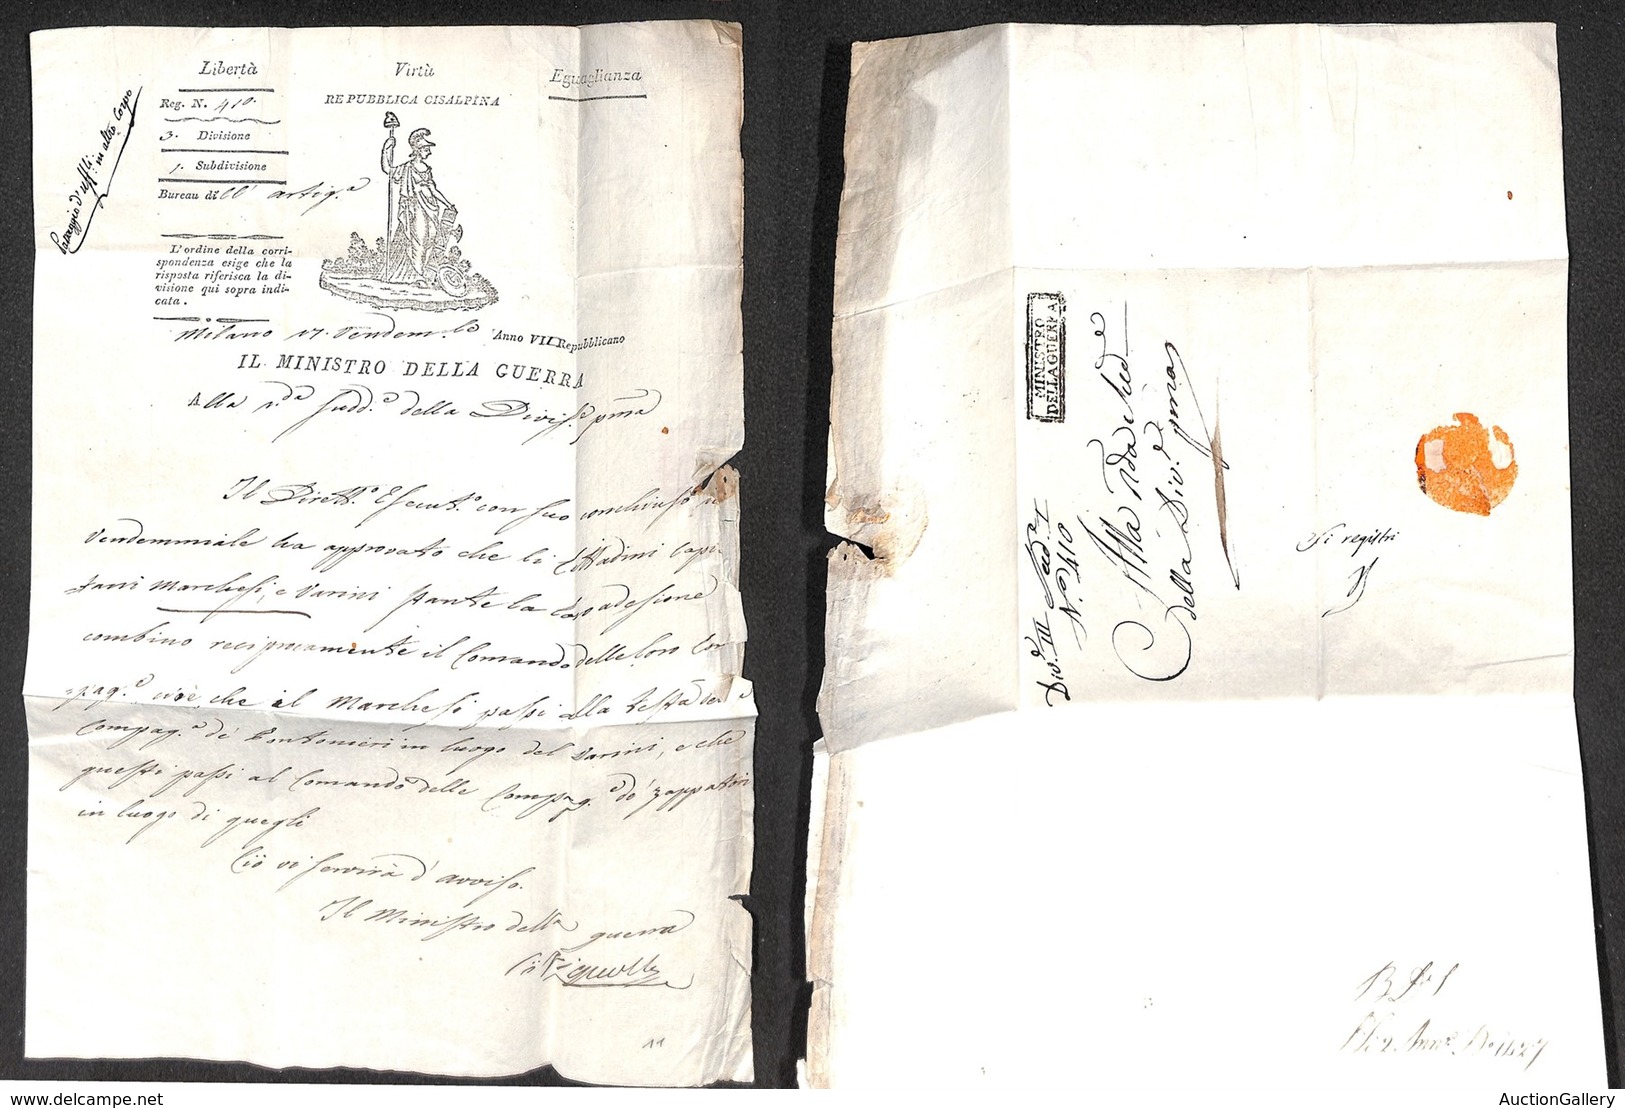 Libertà Virtù Eguaglianza
REPUBBLICA CISALPINA
Reg. N. 410.
3. Divisione
1. Subdivisione
Bureau di ll' artig.a
Passaggio d'Uffli: in altro Corpo
L'ordine della corri-
spondenza esige che la
risposta riferisca la di-
visione qui sopra indi-
cata.
Milano 17. Vendem.le Anno VII Repubblicano
IL MINISTRO DELLA GUERRA
Alla 2.da Sudd.e della Divis.e pma
Il Dirett.o Esecut.o con suo conchiuso
Vendemmiale ha approvato che li Cittadini Capi-
tani Marchesi, e Varini stante la loro adesione
combino reciprocamente il Comando delle loro Com
pag.e cioè che il Marchesi passi alla testa della
Compag.a de' Pontonieri in luogo del Varini, e che
questi passi al Comando delle Compag.e de' Zappatori
in luogo di quegli
Ciò vi servirà d'avviso.
Il Ministro della guerra
11
MINISTRO
DELLA GUERRA
Div.e III Sud.e I
N.o 410
Alla 2da Sud.e
della Div.e prima
Si registri
AuctionGallery
delcampe.net